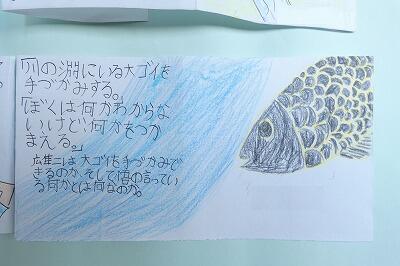 「川の淵にいる大ゴイを
手づかみする。」
「ぼくは何かわからな
いけど、何かをつか
まえる。」
広隆二は大ゴイを手づかみで
きるのか、そして悟の言ってい
る何かとは何なのか。